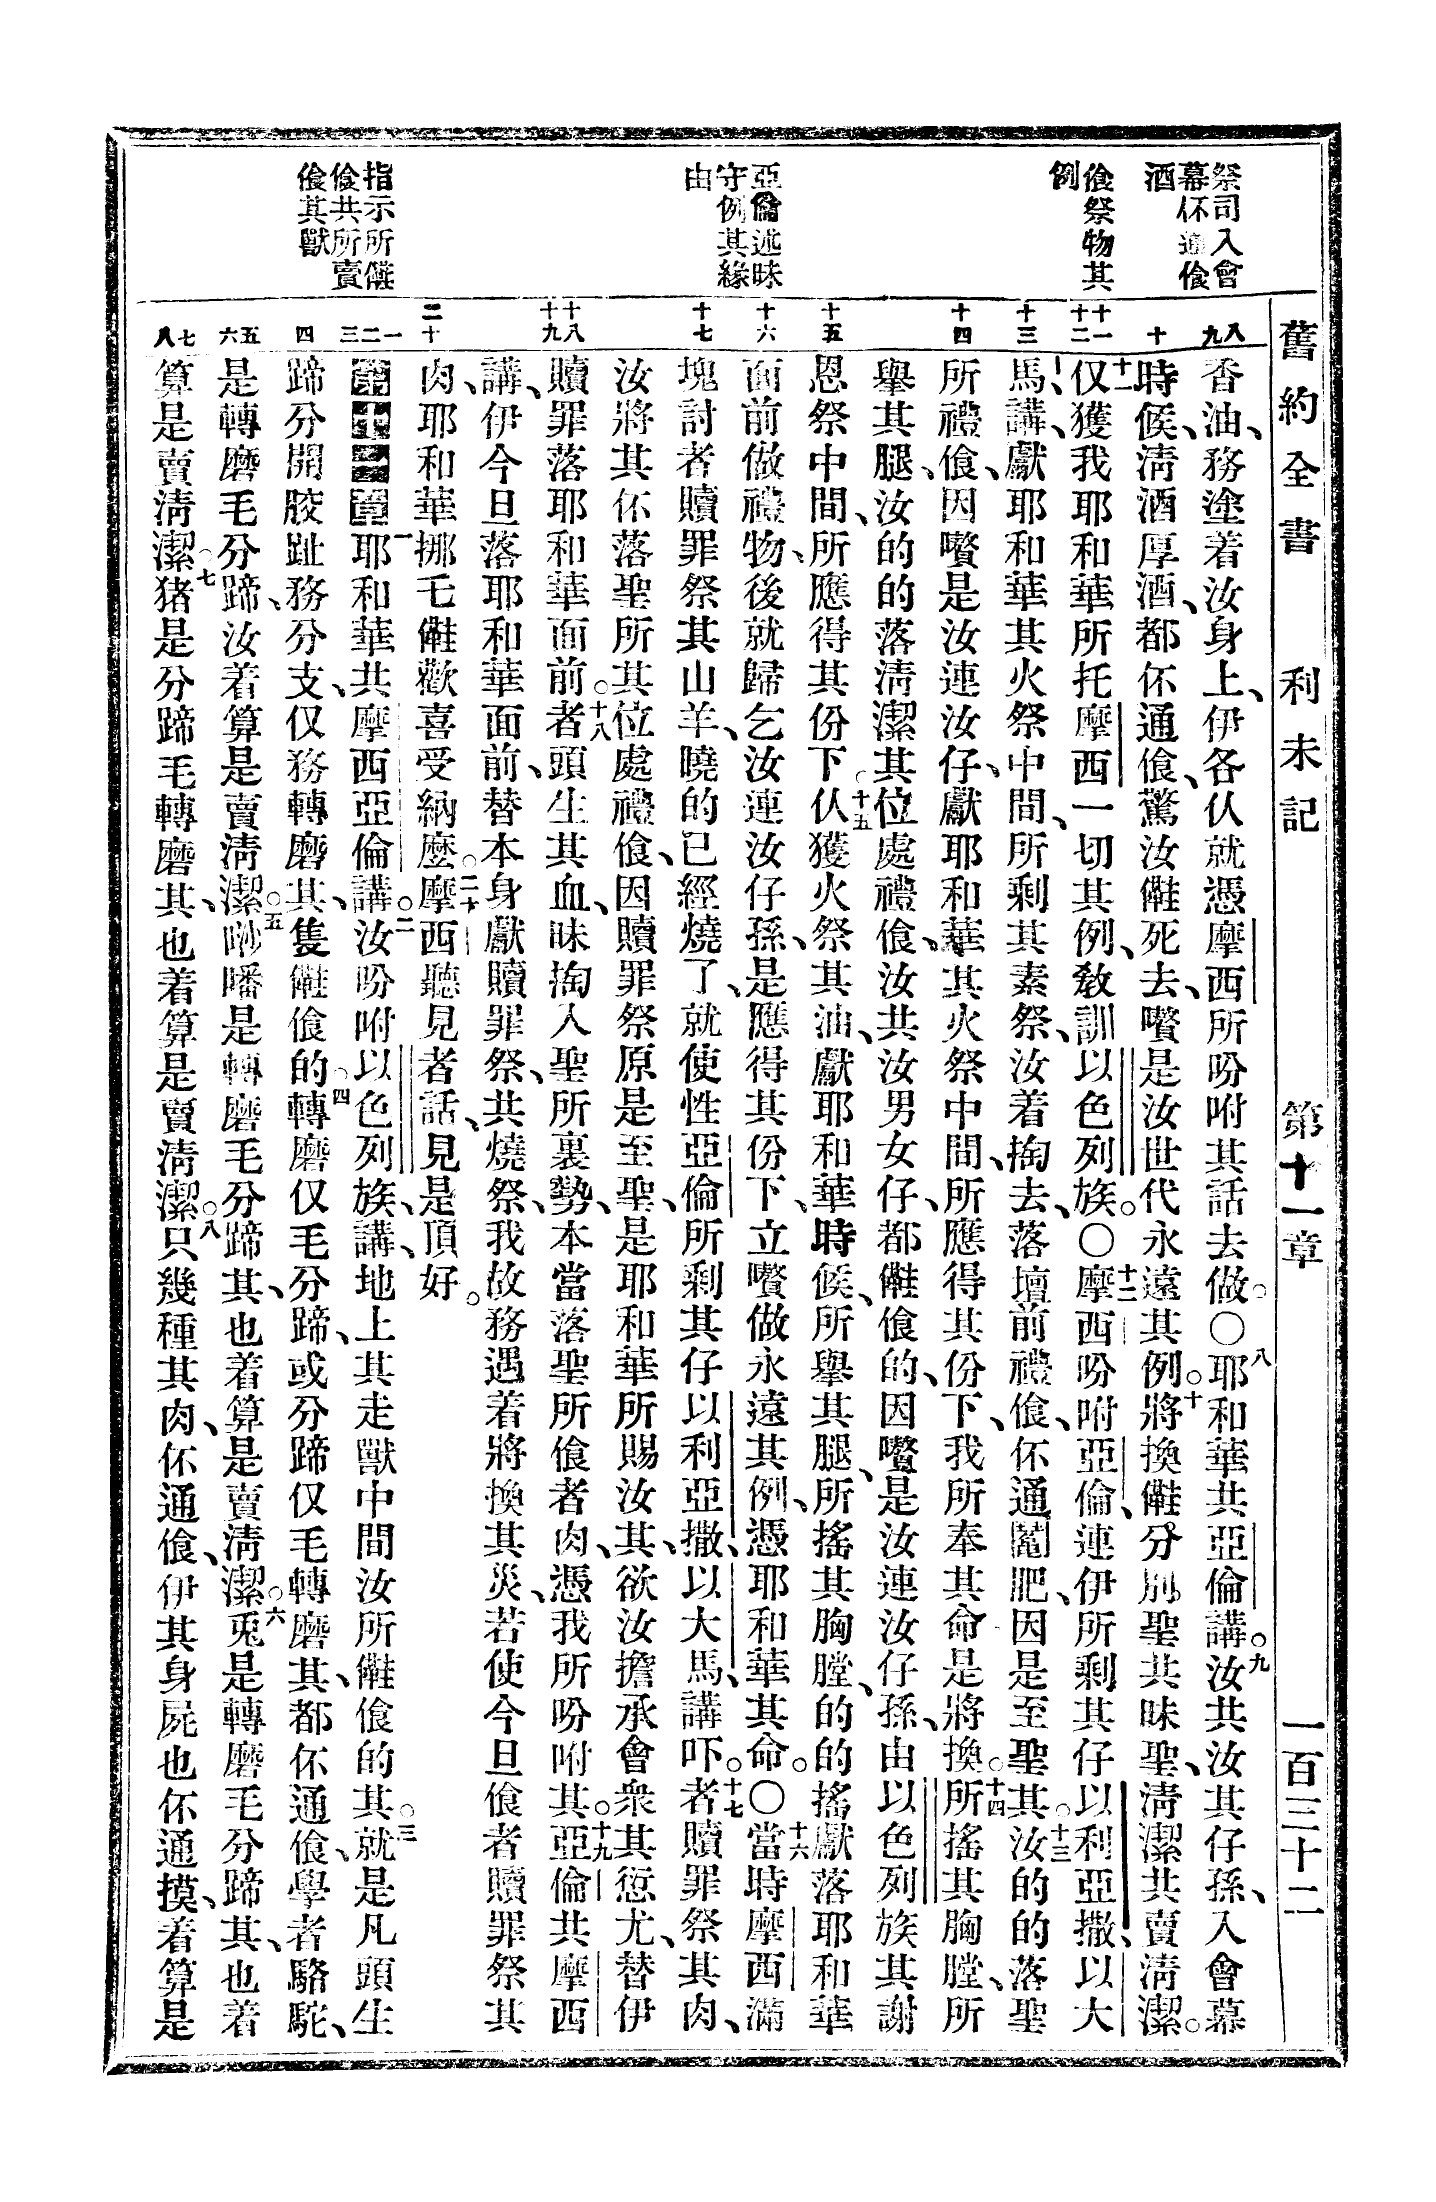 舊約全書　利未記　第十一章　一百三十二
祭司入會
幕伓通飧
酒
飧祭物其
例
亞倫述昧
守例其緣
由
指示所𣍐
飧共所賣
飧其獸
八 九 十 十一 十二 十三 十四 十五 十六 十七 十八 十九 二十 一 二 三 四 五 六 七 八
香油、務塗着汝身上、伊各仈就憑摩西所吩咐其話去做。〇八耶和華共亞倫講。九汝共汝其仔孫、入會幕
時候、淸酒厚酒、都伓通飧、驚汝𣍐死去、嚽是汝世代永遠其例。十將換𣍐分別聖共昧聖、淸潔共賣淸潔。
十一仅獲我耶和華所托摩西一切其例、敎訓以色列族。〇十二摩西吩咐亞倫、連伊所剩其仔以利亞撒、以大
馬、講、獻耶和華其火祭中間、所剩其素祭、汝着掏去、落壇前禮飧、伓通䦧肥、因是至聖其。十三汝的的落聖
所禮飧、因嚽是汝連汝仔、獻耶和華其火祭中間、所應得其份下、我所奉其命是將換。十四所搖其胸膛、所
舉其腿、汝的的落淸潔其位處禮飧、汝共汝男女仔、都𣍐飧的、因嚽是汝連汝仔孫、由以色列族其謝
恩祭中間、所應得其份下。十五仈獲火祭其油、獻耶和華時候、所舉其腿、所搖其胸膛、的的搖獻落耶和華
面前做禮物、後就歸乞汝連汝仔孫、是應得其份下、立嚽做永遠其例、憑耶和華其命。〇十六當時摩西滿
塊討者贖罪祭其山羊、曉的已經燒了、就使性亞倫所剩其仔以利亞撒、以大馬、講吓。十七者贖罪祭其肉、
汝將其伓落聖所其位處禮飧、因贖罪祭原是至聖、是耶和華所賜汝其、欲汝擔承會衆其愆尤、替伊
贖罪落耶和華面前。十八者頭生其血、昧掏入聖所裏勢、本當落聖所飧者肉、憑我所吩咐其。十九亞倫共摩西
講、伊今旦落耶和華面前、替本身獻贖罪祭、共燒祭、我故務遇着將換其災、若使今旦飧者贖罪祭其
肉、耶和華挪乇𣍐歡喜受納麼。二十摩西聽見者話、見是頂好。
第十一章 一耶和華共摩西亞倫講。二汝吩咐以色列族、講、地上其走獸中間汝所𣍐飧的其。三就是凡頭生
蹄分開胶趾務分支、仅務轉磨其、隻𣍐飧的。四轉磨仅毛分蹄、或分蹄仅毛轉磨其、都伓通飧、學者駱駝、
是轉磨毛分蹄、汝着算是賣淸潔。五啰㬁是轉磨毛分蹄其、也着算是賣淸潔。六兎是轉磨毛分蹄其、也着
算是賣淸潔。七猪是分蹄毛轉磨其、也着算是賣淸潔。八只幾種其肉、伓通飧、伊其身屍也伓通摸、着算是